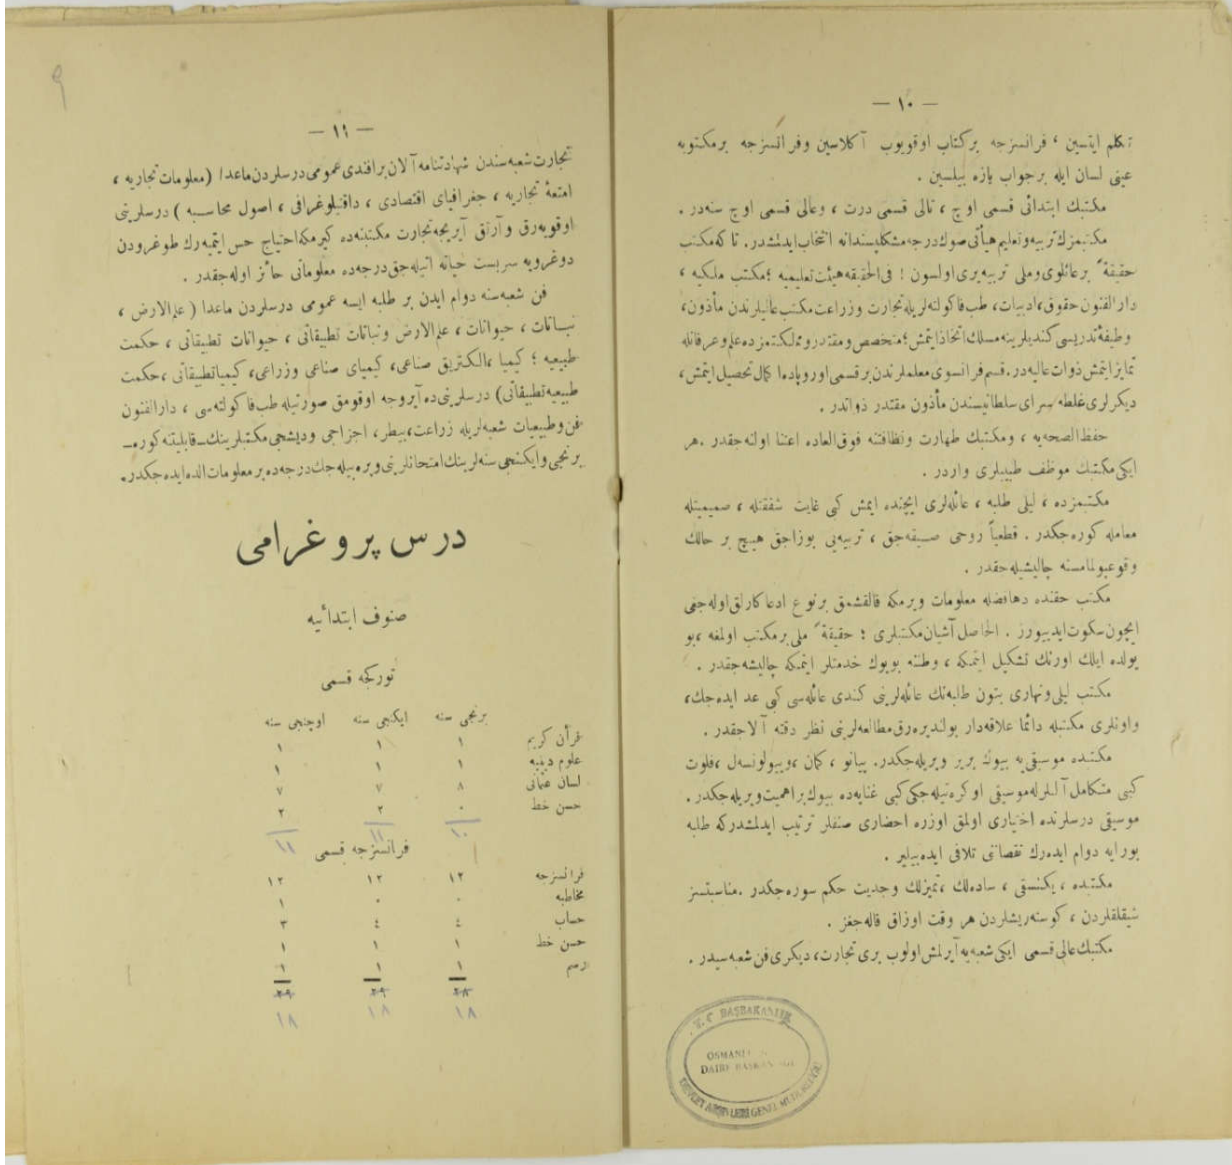 — ١٠ —
تكلم ايتسين ، فرانسزجه بركتاب اوقويوب آكلاسين وفرانسزجه برمكتوبه
عينى لسان ايله برجواب يازه بيلسين .
مكتبك ابتدائى قسمى اوچ ، تالى قسمى درت ، وعالى قسمى اوچ سنه‌در .
مكتبمزك تربيه وتعليم هيأتى صوك درجه مشكلپسندانه انتخاب ايدلمشدر . تا كه مكتب
حقيقةً برعائلوى وملى تربيه يرى اولسون ! فى‌الحقيقه هيئت تعليميه ؛ مكتب ملكيه ،
دارالفنون حقوق ، ادبيات ، طب فاكولته‌لريله تجارت وزراعت مكتب عاليلرندن مأذون ،
وظيفۀ تدريسى كنديلرينه مسلك اتخاذ ايتمش ؛ متخصص ومقتدر ومملكتمزده علم وعرفانله
تمايز ايتمش ذوات عاليه‌در. قسم فرانسوى معلملرندن برقسمى اوروپاده اكمال تحصيل ايتمش ،
ديكرلرى غلطه سراى سلطانيسندن مأذون مقتدر ذواتدر .
حفظ الصحه‌يه ، ومكتبك طهارت ونظافتنه فوق‌العاده اعتنا اولنه‌جقدر . هر
ايكى مكتبك موظف طبيبلرى واردر .
مكتبمزده ، ليلى طلبه ، عائله‌لرى ايچنده ايمش كبى غايت شفقتله ، صميميتله
معامله كوره‌جكدر . قطعياً روحى صيقه‌جق ، تربيه‌يى بوزاجق هيچ بر حالك
وقوعبولمامسنه چاليشيله‌جقدر .
مكتب حقنده دها فضله معلومات ويرمكه قالقشمق برنوع ادعاكارلق اوله‌جغى
ايچون سكوت ايدييورز . الحاصل آشيان مكتبلرى ؛ حقيقةً ملى برمكتب اولمغه ، بو
يولده ايلك اورنك تشكيل ايتمكه ، وطنه بويوك خدمتلر ايتمكه چاليشه‌جقدر .
مكتب ليلى ونهارى بتون طلبه‌نك عائله‌لرينى كندى عائله‌سى كبى عد ايده‌جك ،
واونلرى مكتبله دائما علاقه‌دار بولنديره‌رق مطالعه‌لرينى نظر دقته آلاجقدر .
مكتبده موسيقى‌يه بيوك برير ويريله‌جكدر. پيانو ، كمان ، ويولونسل ، فلوت
كبى متكامل آلتلرله موسيقى اوكره‌تيله‌جكى كبى غنايه‌ده بيوك براهميت ويريله‌جكدر .
موسيقى درسلرنده اختيارى اولمق اوزره احضارى صنفلر ترتيب ايدلمشدركه طلبه
بورايه دوام ايده‌رك نقصانى تلافى ايده‌بيلير .
مكتبده ، يكنسقى ، ساده‌لك ، تميزلك وجديت حكم سوره‌جكدر . مناسبتسز
شيقلقلردن ، كوسته‌ريشلردن هر وقت اوزاق قاله‌جغز .
مكتبك عالى قسمى ايكى شعبه‌يه آيرلمش اولوب برى تجارت ، ديكرى فن شعبه‌سيدر .
T. C. BAŞBAKANLIK
OSMANLI
DAİRE BAŞKANLIĞI
DEVLET ARŞİVLERİ GENEL MÜDÜRLÜĞÜ
— ١١ —
تجارت شعبه‌سندن شهادتنامه آلان برافندى عمومى درسلردن ماعدا ( معلومات تجاريه ،
امتعۀ تجاريه ، جغرافياى اقتصادى ، داقتيلوغرافى ، اصول محاسبه ) درسلرينى
اوقويه‌رق وآرتق آيريجه تجارت مكتبنه‌ده كيرمكه احتياج حس ايتميه‌رك طوغرودن
دوغرويه سربست حياته آتيله‌جق درجه‌ده معلوماتى حائز اوله‌جقدر .
فن شعبه‌سنه دوام ايدن بر طلبه ايسه عمومى درسلردن ماعدا ( علم‌الارض ،
نباتات ، حيوانات ، علم‌الارض ونباتات تطبيقاتى ، حيوانات تطبيقاتى ، حكمت
طبيعيه ؛ كيميا ، الكتريق صناعى ، كيمياى صناعى وزراعى ، كيميا تطبيقاتى ، حكمت
طبيعيه تطبيقاتى ) درسلرينى‌ده آيروجه اوقومق صورتيله طب فاكولته‌سى ، دارالفنون
فن وطبيعيات شعبه‌لريله زراعت ، بيطر ، اجزاجى وديشجى مكتبلرينك ـ قابليتنه كوره ـ
برنجى وايكنجى سنه‌لرينك امتحانلرينى ويره‌بيله‌جك درجه‌ده بر معلومات الده ايده‌جكدر .
درس پروغرامى
صنوف ابتدائيه
توركجه قسمى
برنجى سنه ايكنجى سنه اوچنجى سنه
قرآن كريم ١ ١ ١
علوم دينيه ١ ١ ١
لسان عثمانى ٨ ٧ ٧
حسن خط ٠ ٢ ٢
١٠ ١١ ١١
فرانسزجه قسمى
فرانسزجه ١٢ ١٢ ١٢
مخاطبه ٠ ٠ ١
حساب ٤ ٤ ٣
حسن خط ١ ١ ١
رسم ١ ١ ١
٢٨ ٢٩ ٢٩
١٨ ١٨ ١٨